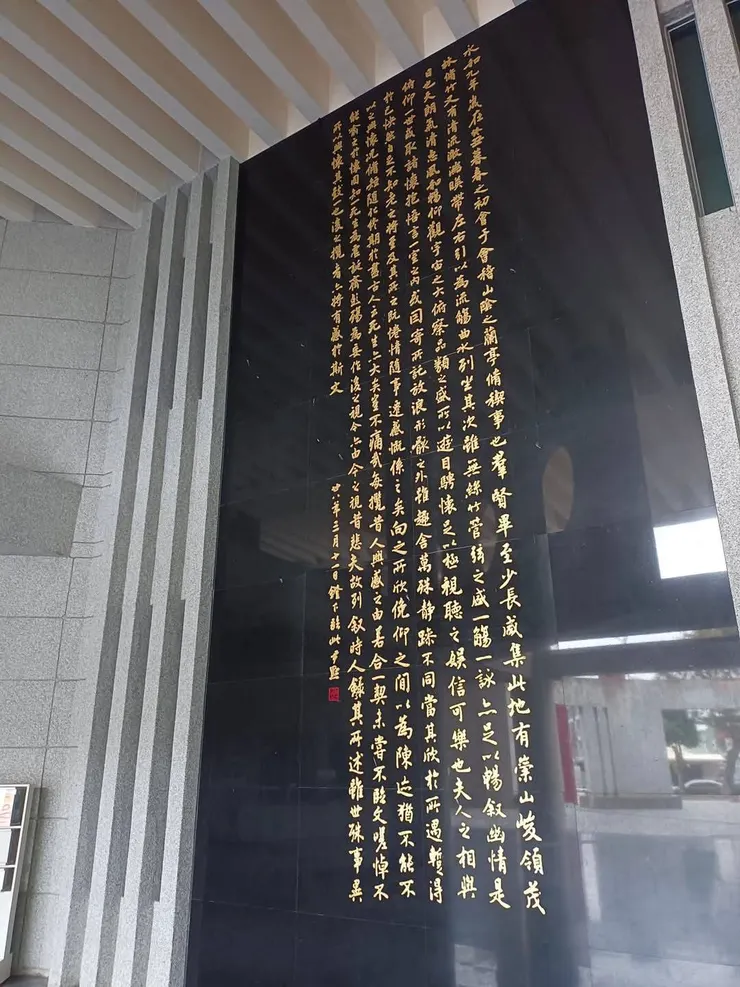 永和九年歲在癸丑暮春之初會于會稽山陰之蘭亭脩禊事也羣賢畢至少長咸集此地有崇山峻領茂
林脩竹又有清流激湍暎帶左右引以為流觴曲水列坐其次雖無絲竹管弦之盛一觴一詠亦足以暢叙幽情是
日也天朗氣清惠風和暢仰觀宇宙之大俯察品類之盛所以遊目騁懷足以極視聽之娛信可樂也夫人之相與
俯仰一世或取諸懷抱悟言一室之內或因寄所託放浪形骸之外雖趣舍萬殊静躁不同當其欣於所遇暫得
於己快然自足不知老之將至及其所之既惓情隨事遷感慨係之矣向之所欣俛仰之間以為陳迹猶不能不
以之興懷況脩短隨化終期於盡古人云死生亦大矣豈不痛哉每攬昔人興感之由若合一契未嘗不臨文嗟悼不
能喻之於懷固知一死生為虛誕齊彭殤為妄作後之視今亦由今之視昔悲夫故列叙時人錄其所述雖世殊事異
所以興懷其致一也後之攬者亦將有感於斯文
廿八年三月十一日鐙下臨此